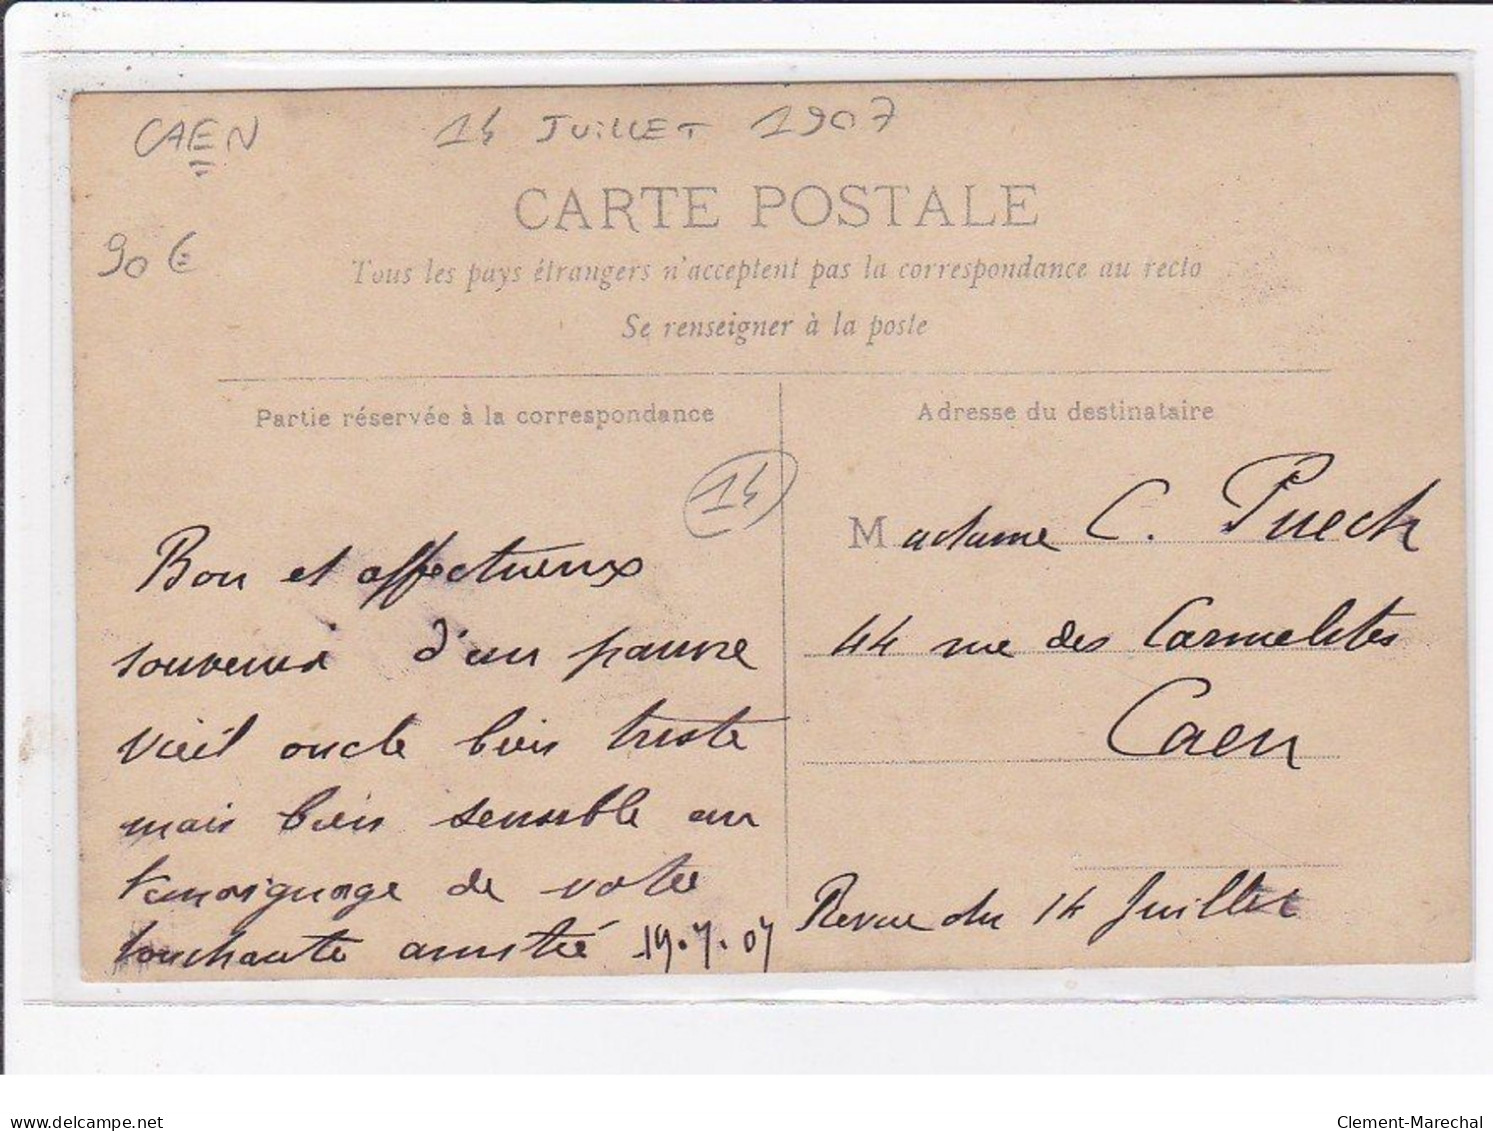 CAEN
14 JUILLET 1907
90 €
CARTE POSTALE
Tous les pays étrangers n'acceptent pas la correspondance au recto
Se renseigner à la poste
Partie réservée à la correspondance
Adresse du destinataire
14
Bon et affectueux
souvenir d'un pauvre
vieil oncle bien triste
mais bien sensible au
témoignage de votre
touchante amitié 19.7.07
Madame C. Puech
44 rue des Carmelites
Caen
Revue du 14 Juillet
www.delcampe.net
Clement-Marechal